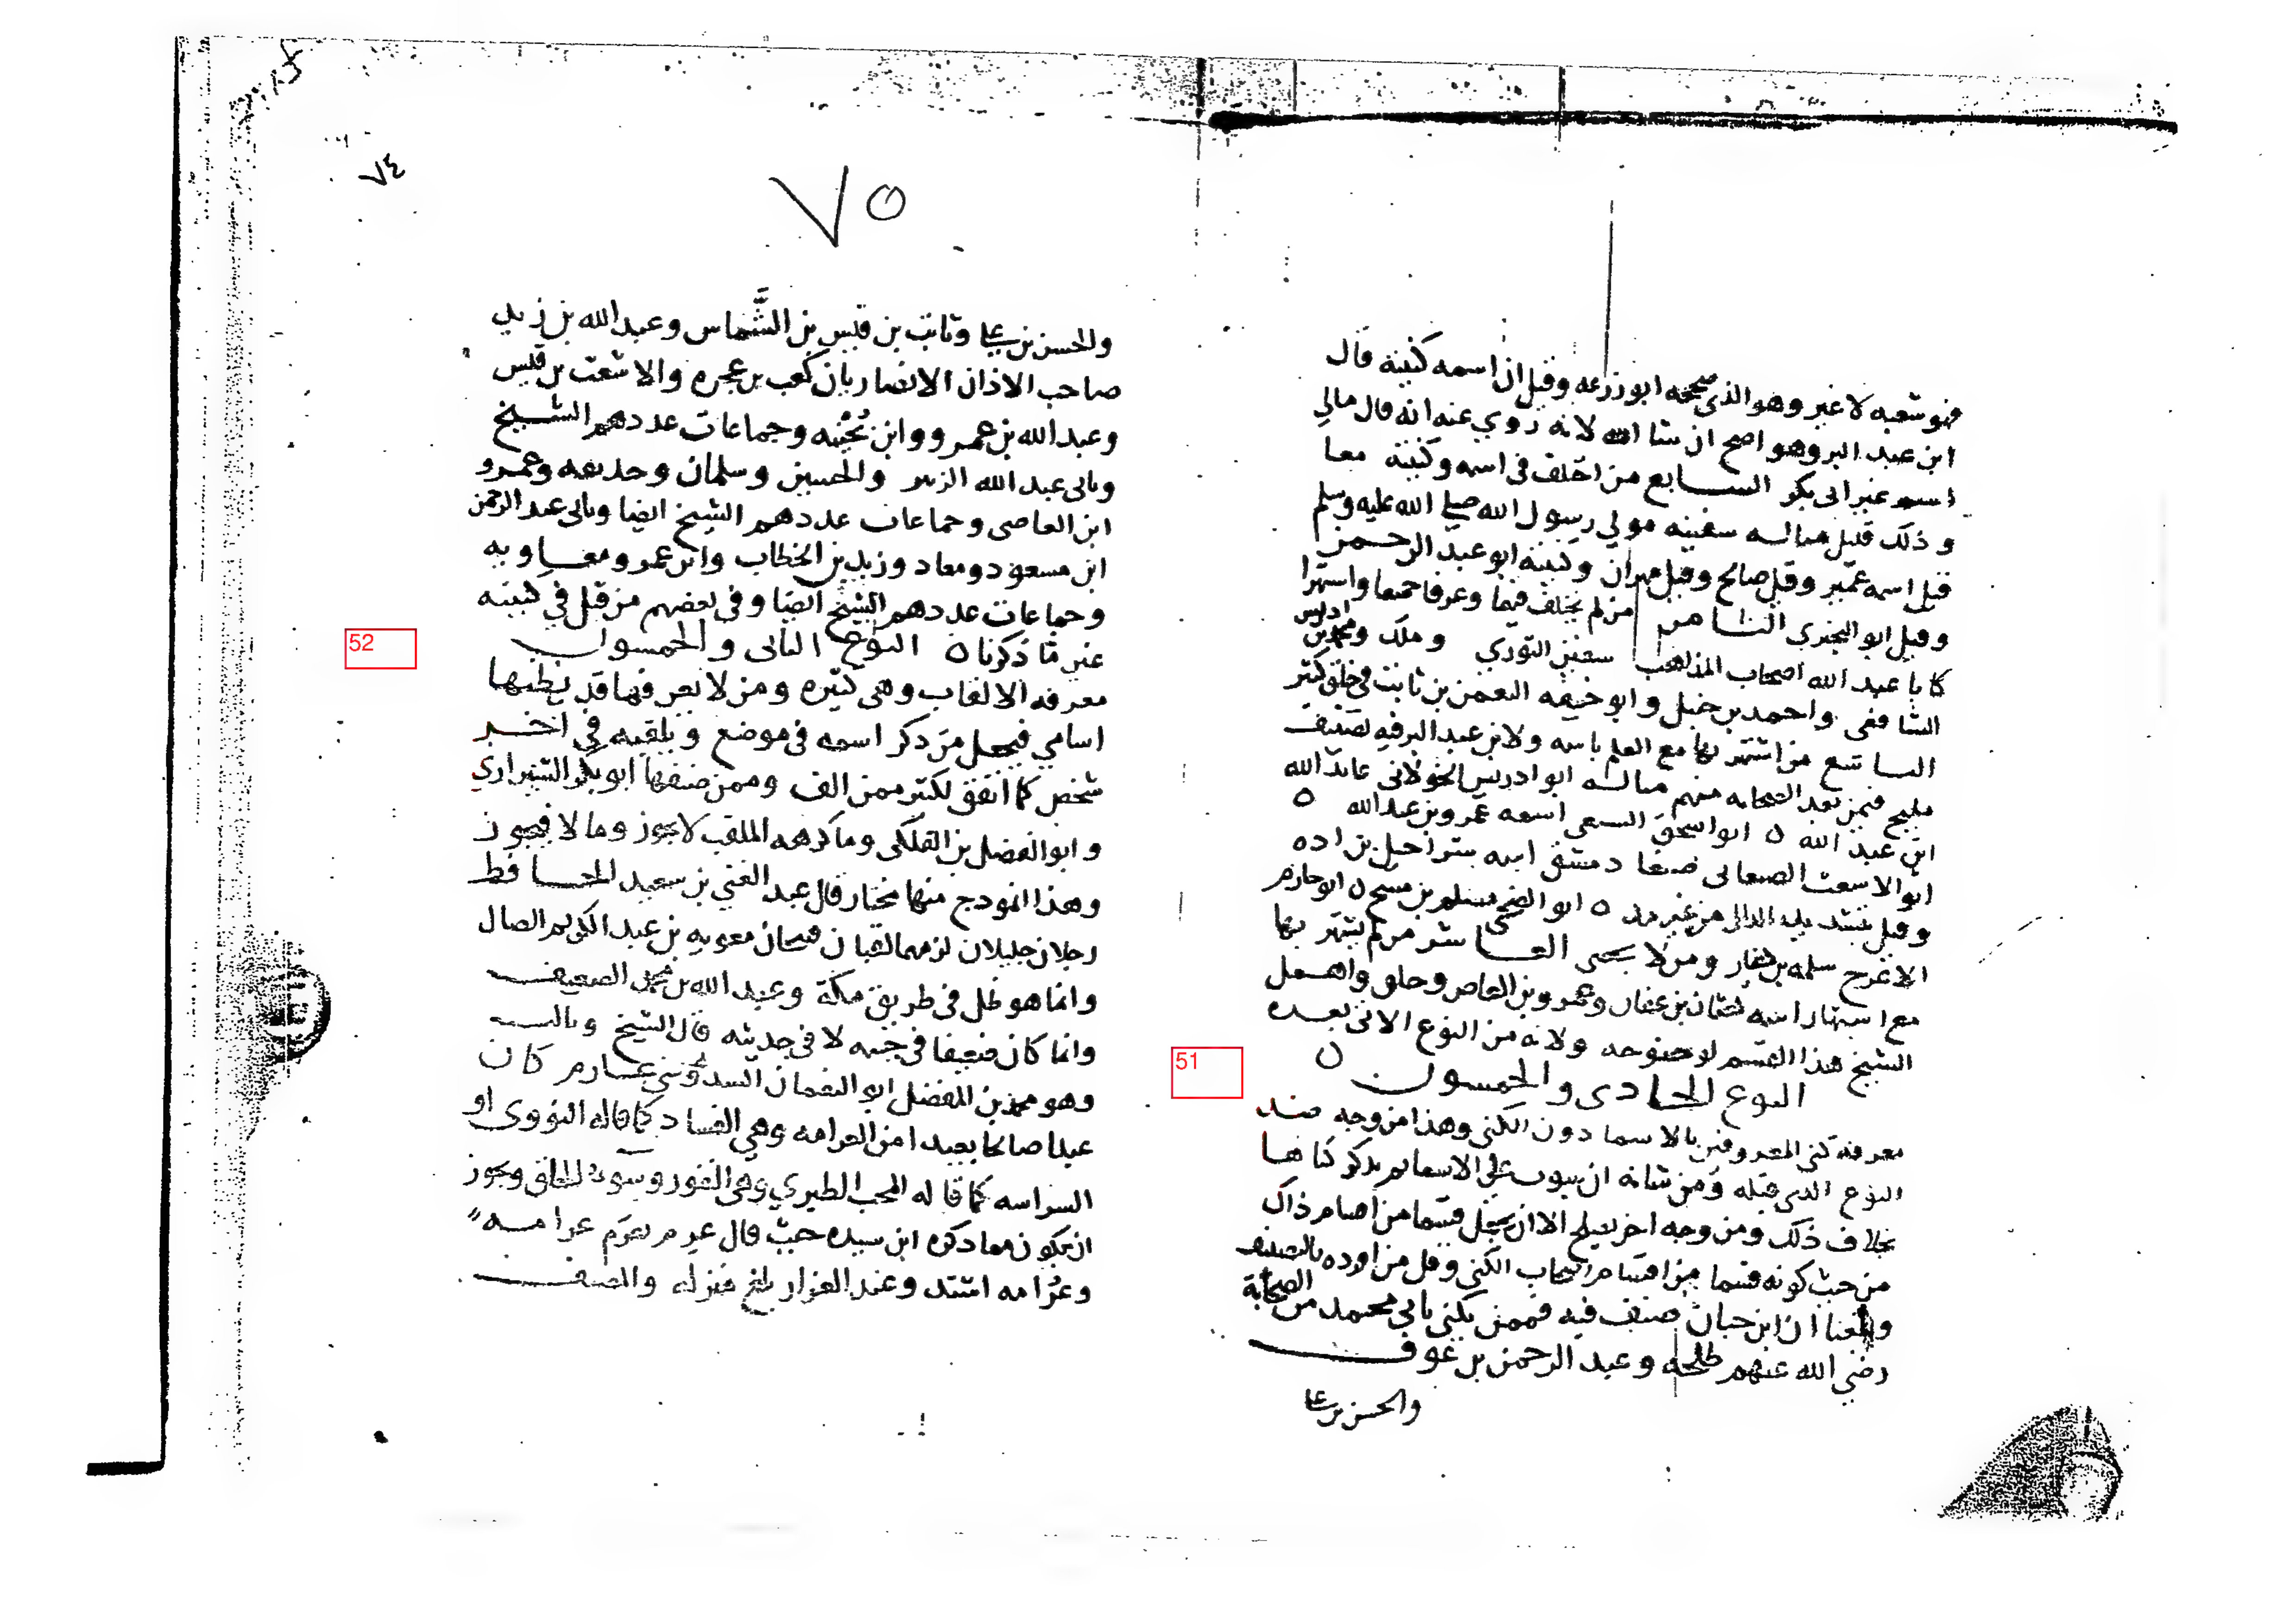 فهو شعبه لا غير وهو الذي صححه ابو زرعه وقيل ان اسمه كنيته قال
ابن عبد البر وهو اصح ان شا الله لانه روي عنه انه قال مالي
اسم غير ابي بكر السابع من اختلف في اسمه وكنيته معا
وذلك قليل مثاله سفينه مولي رسول الله صلي الله عليه وسلم
قيل اسمه عمير وقيل صالح وقيل مهران وكنيته ابو عبد الرحمن
وقيل ابو البختري الثامن من لم يختلف فيهما وعرفا جميعا واشتهرا
كابا عبد الله اصحاب المذاهب سفين الثوري وملك ومحمد بن ادريس
الشافعي واحمد بن حنبل وابو حنيفه النعمن بن ثابت في خلق كثير
التاسع من اشتهر بها مع العلم باسمه ولابن عبد البر فيه تصنيف
مليح فيمن بعد الصحابه منهم مثاله ابو ادريس الخولاني عايد الله
ابن عبد الله ٥ ابو اسحق السبيعي اسمه عمرو بن عبد الله ٥
ابو الاشعث الصنعاني صنعا دمشق اسمه شراحيل بن اده
وقيل بتشديد الدال من غير مد ٥ ابو الضحى مسلم بن صبيح ٥ ابو حازم
الاعرج سلمه بن دينار ومن لا يحصى العاشر من لم يشتهر بها
مع اشتهار اسمه لعثمان بن عفان وعمرو بن العاص وخلق واهمل
الشيخ هذا القسم لوضوحه ولانه من النوع الاتى بعده
٥ النوع الحادى والخمسون
معرفة كنى المعروفين بالاسما دون الكنى وهذا من وجه ضد
النوع الذى قبله ومن شانه ان يبوب على الاسما ثم يذكر كناها
بخلاف ذلك ومن وجه اخر يصلح الا ان يجعل قسما من اقسام ذاك
من حيث كونه قسما من اقسام اصحاب الكنى وقل من افرده بالتصنيف
وبلغنا ان ابن حبان صنف فيه فممن يكنى بابي محمد من الصحابة
رضي الله عنهم طلحه وعبد الرحمن بن عوف
والحسن بن علي
51
٧٤
٧٥
والحسن بن علي وثابت بن قيس بن الشَّمَّاس وعبد الله بن زيد
صاحب الاذان الانصاريان كعب بن عجره والاشعث بن قيس
وعبد الله بن عمرو وابن بُحَيْنه وجماعات عددهم الشيخ
وبابى عبد الله الزبير والحسين وسلمان وحذيفه وعمرو
ابن العاصى وجماعات عددهم الشيخ ايضا وبابى عبد الرحمن
ابن مسعود ومعاذ وزيد بن الخطاب وابن عمر ومعاويه
وجماعات عددهم الشيخ ايضا وفى بعضهم من قيل في كنيته
غير ما ذكرنا ٥ النوع الثانى والخمسون
52
معرفه الالقاب وهى كثيره ومن لا يعرفها قد يظنها
اسامي فيجعل من ذكر اسمه فى موضع وبلقبه في اخر
شخصين كما اتفق لكثير ممن الف وممن صنفها ابو بكر الشيرازي
وابو الفضل بن الفلكى وما كرهه الملقب لا يجوز وما لا فيجوز
وهذا انموذج منها مختار قال عبد الغني بن سعيد الحافظ
رجلان جليلان لزمهما لقبان قبيحان معويه بن عبد الكريم الضال
وانما هو ضل فى طريق مكة وعبد الله بن محمد الضعيف
وانما كان ضعيفا في جسمه لا في حديثه قال الشيخ وثالث
وهو محمد بن الفضل ابو النعمان السدوسي عارم كان
عبدا صالحا بعيدا من العرامه وهي الفساد كما قاله النووى او
الشراسه كما قاله المحب الطبري وسوء الخلق ويجوز
ان يكون مما ذكره ابن سيده حيث قال عرم يعرم عرامه
وعُرَامه اشتد وعند القزاز بلغ منزله والضعف